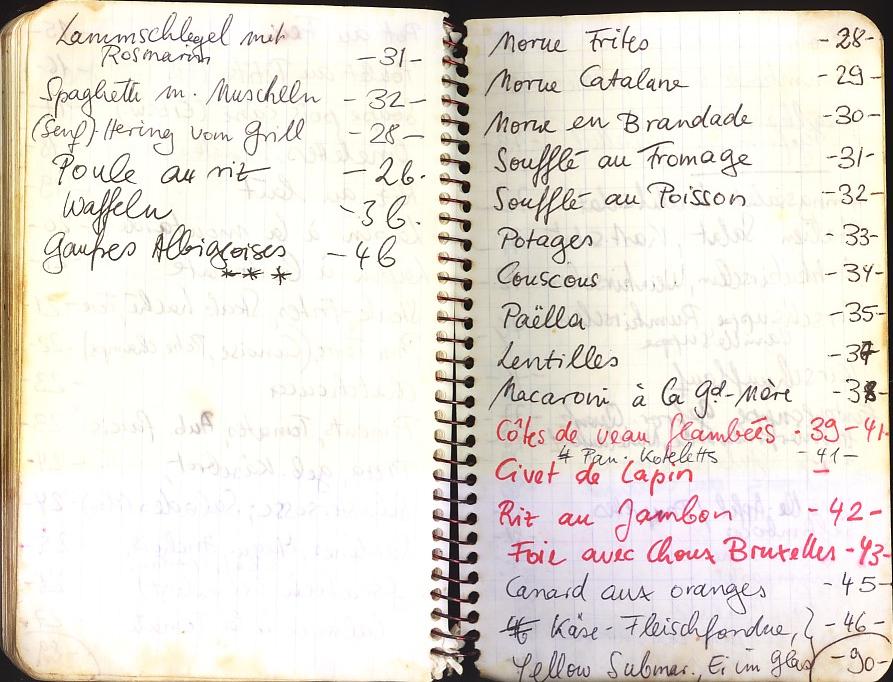 Lammschlegel mit
Rosmarin - 31 -
Spaghetti m. Muscheln - 32 -
(Senf)-Hering vom Grill - 28 -
Poule au riz - 26.
Waffeln - 36.
Gaufres Albigeoises - 46
***
Morue Frites - 28 -
Morue Catalane - 29 -
Morue en Brandade - 30 -
Soufflé au Fromage - 31 -
Soufflé au Poisson - 32 -
Potages - 33 -
Couscous - 34 -
Paëlla - 35 -
Lentilles - 37
Macaroni à la gd-Mère - 38 -
Côtes de veau flambées - 39 - 41 -
Pan. Koteletts - 41 -
Civet de Lapin -
Riz au Jambon - 42 -
Foie avec Choux Bruxelles - 43 -
Canard aux oranges - 45 -
Käse-Fleischfondue, } - 46 -
Yellow Submar., Ei im Glas - 90 -